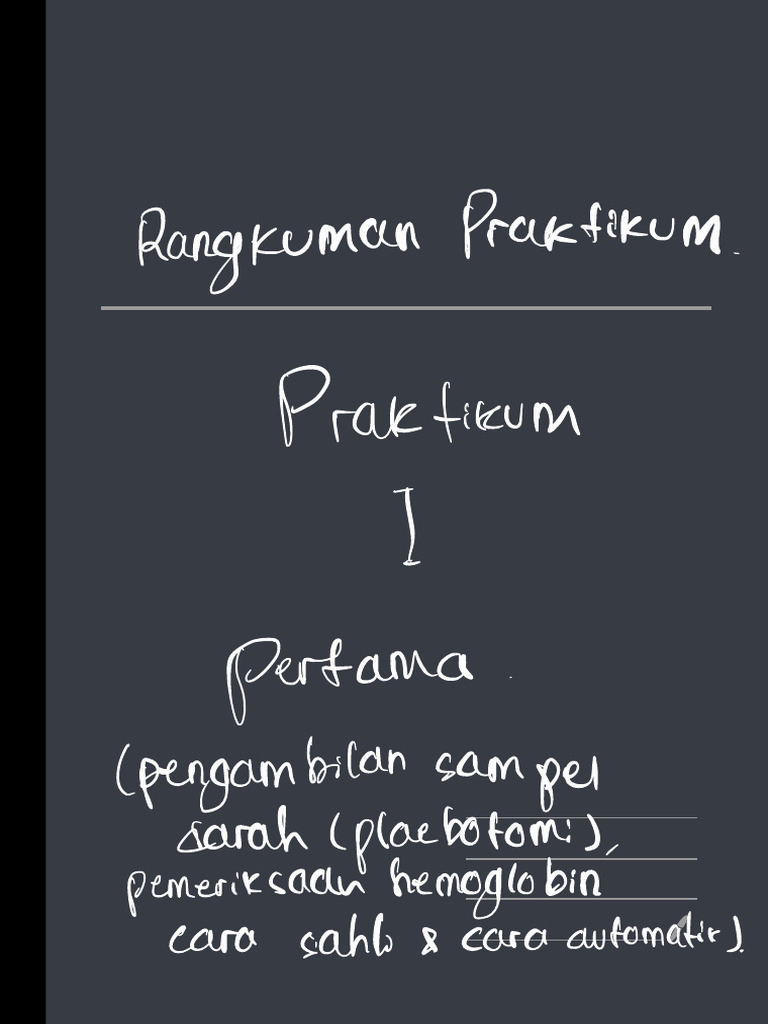 Rangkuman Praktikum.
Praktikum
I
Pertama.
(pengambilan sampel
darah (plaebotomi),
pemeriksaan hemoglobin
cara sahli & cara automatik).